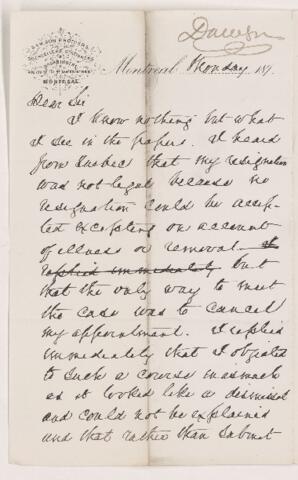 Dawson
DAWSON BROTHERS
MONTREAL
Montreal, Monday 187
Dear Sir
I know nothing but what
I see in the papers. I heard
from Quebec that my resignation
was not legal because no
resignation could be accep-
ted excepting on account
of illness or removal. I
replied immediately but
that the only way to meet
the case was to cancel
my appointment. I replied
immediately that I objected
to such a course inasmuch
as it looked like a dismissal
and could not be explained
and that rather than submit